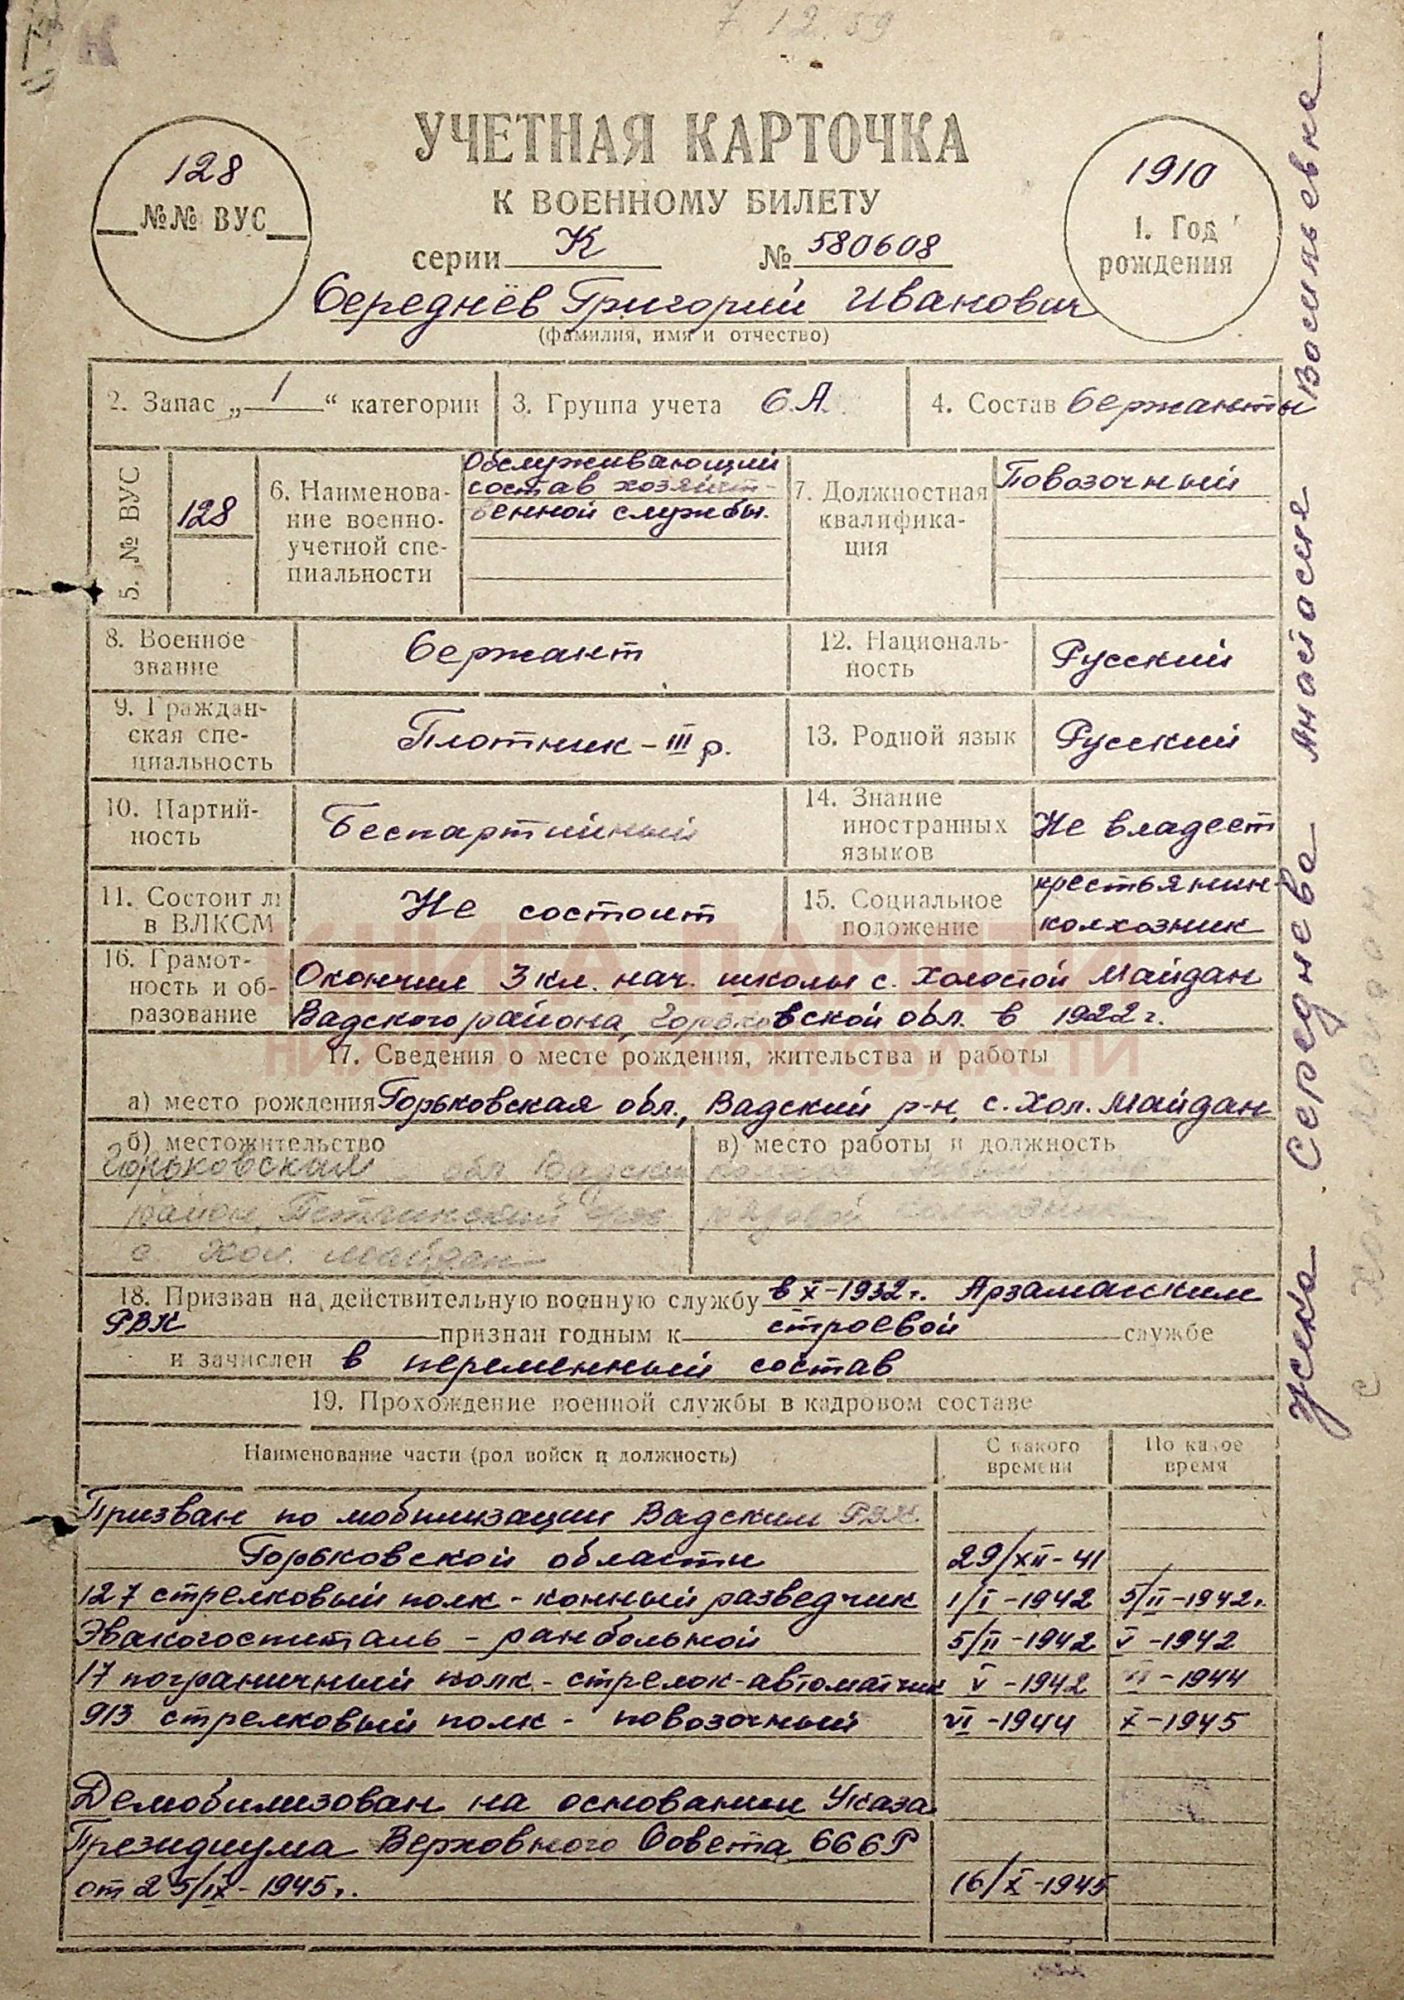 7 12.59
УЧЕТНАЯ КАРТОЧКА
К ВОЕННОМУ БИЛЕТУ
128
№№ ВУС
серии К № 580608
1910
1. Год
рождения
Середнёв Григорий Иванович
(фамилия, имя и отчество)
2. Запас „1“ категории
3. Группа учета С.А.
4. Состав Сержанты
5. № ВУС
128
6. Наименова-
ние военно-
учетной спе-
циальности
Обслуживающий
состав хозяйст-
венной службы.
7. Должностная
квалифика-
ция
Повозочный
8. Военное
звание
Сержант
12. Националь-
ность
Русский
9. Граждан-
ская спе-
циальность
Плотник – III р.
13. Родной язык
Русский
10. Партий-
ность
Беспартийный
14. Знание
иностранных
языков
Не владеет
11. Состоит ли
в ВЛКСМ
Не состоит
15. Социальное
положение
крестьянин-
колхозник
16. Грамот-
ность и об-
разование
Окончил 3 кл. нач. школы с. Холостой Майдан
Вадского района, Горьковской обл. в 1922 г.
КНИГА ПАМЯТИ
НИЖЕГОРОДСКОЙ ОБЛАСТИ
17. Сведения о месте рождения, жительства и работы
а) место рождения Горьковская обл., Вадский р-н, с. Хол. Майдан
б) местожительство
Горьковская обл. Вадский
район, Петлинский
с. Хол. Майдан
в) место работы и должность
колхоз
рядовой колхозник
18. Призван на действительную военную службу в X-1932 г. Арзамасским
РВК признан годным к строевой службе
и зачислен в переменный состав
19. Прохождение военной службы в кадровом составе
Наименование части (род войск и должность)
С какого
времени
По какое
время
Призван по мобилизации Вадским РВК
Горьковской области 29/XII-41
127 стрелковый полк - конный разведчик 1/I-1942 5/II-1942 г.
Эвакогоспиталь - ранбольной 5/II-1942 V-1942
17 пограничный полк - стрелок-автоматчик V-1942 VI-1944
913 стрелковый полк - повозочный VI-1944 X-1945
Демобилизован на основании Указа
Президиума Верховного Совета СССР
от 25/IX-1945 г. 16/X-1945
Жена Середнева Анастасия Васильевна
с Хол. Майдан